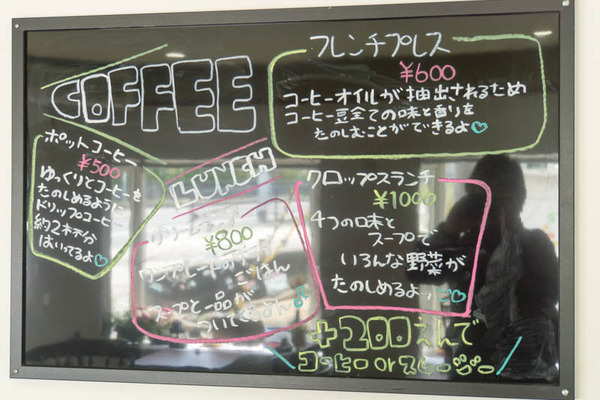 COFFEE
フレンチプレス
¥600
コーヒーオイルが抽出されるため
コーヒー豆全ての味と香りを
たのしむことができるよ♡
ポットコーヒー
¥500
ゆっくりとコーヒーを
たのしめるように
ドリップコーヒー
約2杯分
はいってるよ♡
LUNCH
クロップスランチ
¥1000
4つの味と
スープで
いろんな野菜が
たのしめるよ♡
¥800
ワンプレートの
ごはん
スープと一品が
+200えんで
コーヒー or スムージー